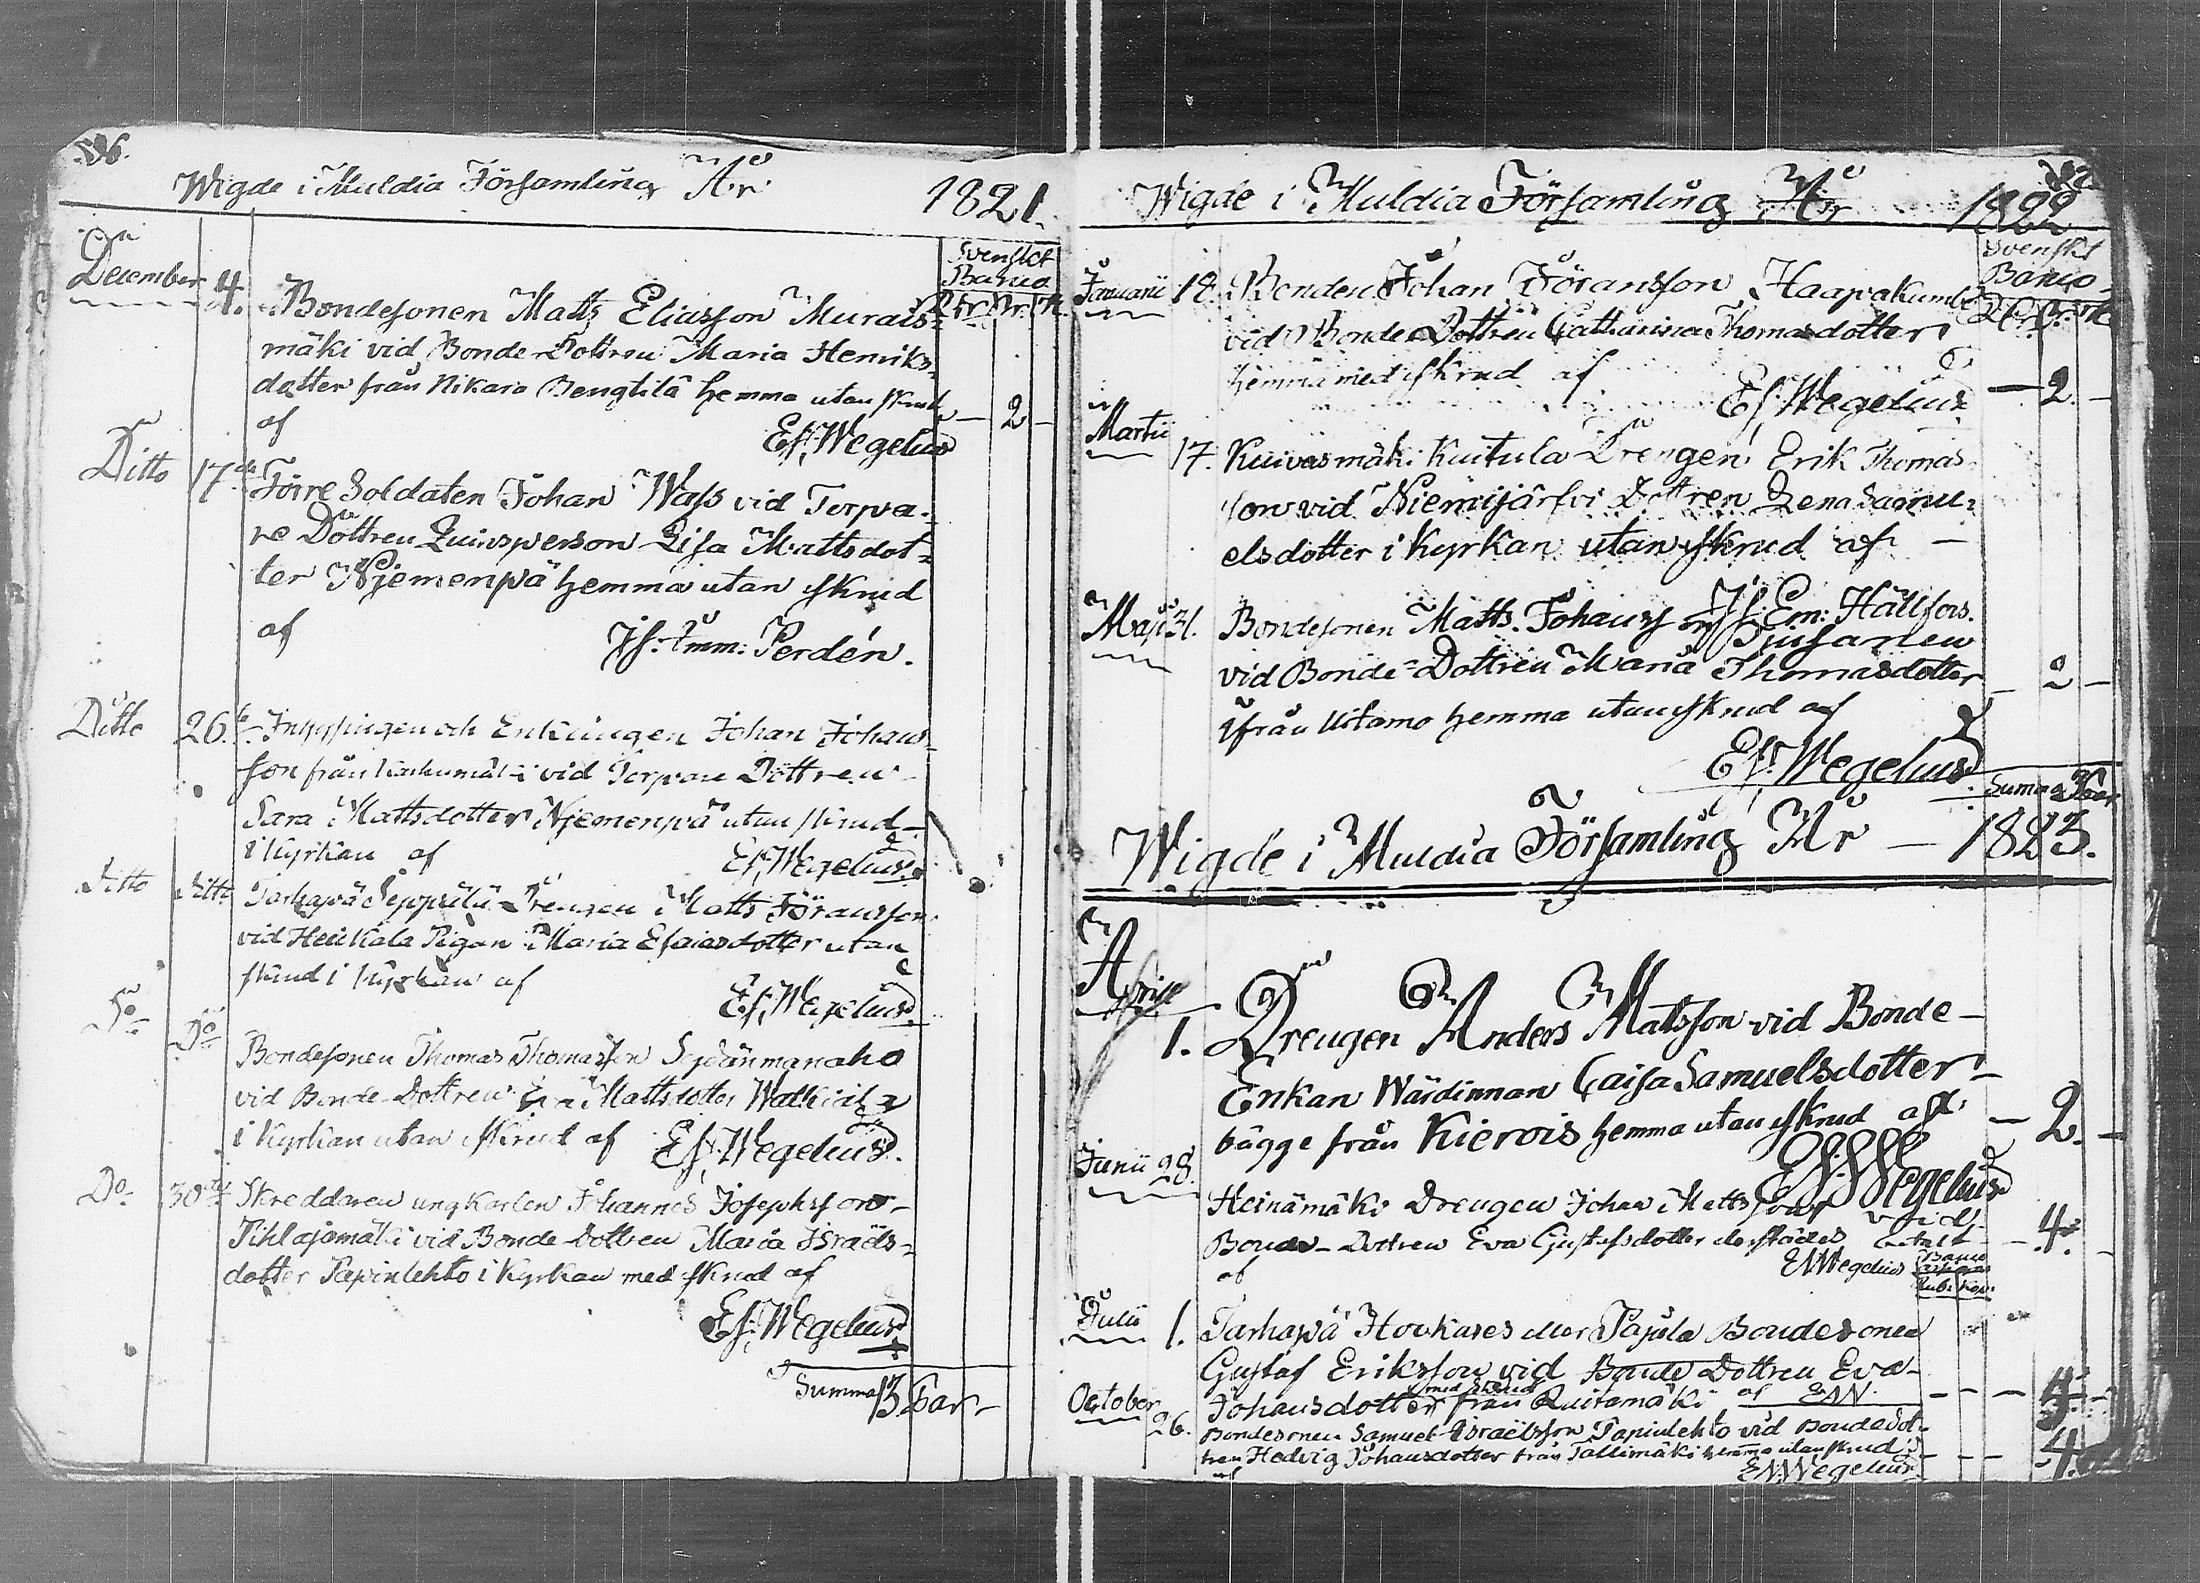 Wigde i Muldia Församling År 1821.
Svenskt
Banco
December 4. Bondesonen Matts Eliasson Murais=
mäki vid Bonde Dottren Maria Henriks=
dotter från Nikara Bengtilä hemma utan skrud
af Es: Wegelius — 2 —
Ditto 17de Förre Soldaten Johan Wass vid Torpa=
re Dottren Qvinsperson Lisa Mattsdot=
ter Njemenpä hemma utan skrud
af Js: Emm: Perdén.
Ditto 26te Inhysingen och Enklingen Johan Johans=
son från vid Torpare Dottren
Sara Mattsdotter Njemenpä utan skrud
i Kyrkan af Es: Wegelius
Ditto Ditto Tarhapä Seppälä Drengen Matts Göransson
vid Heikkala Pigan Maria Esaiasdotter utan
skrud i Kyrkan af
Es: Wegelius
Do Do
Bondesonen Thomas Thomasson Sydänmanaho
vid Bonde Dottren Eva Mattsdotter
i Kyrkan utan skrud af Es: Wegelius.
Do 30te Skreddaren ungkarlen Johannes Josephsson
Pihlajamäki vid Bonde Dottren Maria Israels=
dotter Papinlehto i Kyrkan med skrud af
Es: Wegelius
Summa 13 Par
Wigde i Muldia Församling År 1822
Svenskt
Banco
Januarii 18. Bonden Johan Göransson
vid Bonde Dottren Catharina Thomasdotter
hemma med skrud af
Es: Wegelius — 2. —
Martii
17. Kuivasmäki Kuitula Drengen Erik Thomas=
son vid Niemijärfvi Dottren Lena Samu=
elsdotter i Kyrkan utan skrud af —
Js: Em: Hällfors.
Maji 31. Bondesonen Matts Johansson
vid Bonde=Dottren Maria Thomasdotter
ifrån Uitamo hemma utan skrud af — 2 —
Es: Wegelius
Summa Par
Wigde i Muldia Församling År — 1823.
April
1. Drengen Anders Mattsson vid Bonde
Enkan Wärdinnan Caisa Samuelsdotter
bägge från Kierois hemma utan skrud af — 2. —
Es: Wegelius
Junii 28.
Heinämäki Drengen Johan Mattsson vid
Bonde Dottren Eva Gustafsdotter derstädes — 4. —
af EN Wegelius
Banco
Rub: kop:
Julii 1. Tarhapä Hovkares eller Pajula Bondesonen
Gustaf Eriksson vid Bonde Dottren Eva
med skrud
Johansdotter från Ruitamäki af ENW. — — — 4 —
October
26. Bondesonen Samuel Israelsson Papinlehto vid Bondedot=
tren Hedvig Johansdotter från Tallimäki hemma utan skrud — — — 4
af EN. Wegelius